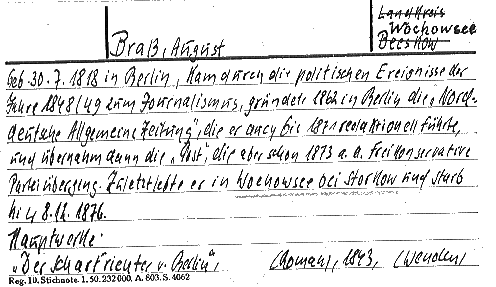 Landkreis
Wochowsee
Beeskow
Braß, August
Geb. 30.7.1818 in Berlin, kam durch die politischen Ereignisse der
Jahre 1848/49 zum Journalismus, gründete 1862 in Berlin die „Nord-
deutsche Allgemeine Zeitung", die er auch bis 1871 redaktionell führte,
und übernahm dann die „Post", die aber schon 1873 a. d. freikonservative
Partei überging. Zuletzt lebte er in Wochowsee bei Storkow und starb
hier 8.12.1876.
Hauptwerke:
„Der Scharfrichter v. Berlin", (Roman), 1843, (Wenden)
Reg. 10. Stichnote. 1. 50. 232000. A. 803. S. 4062